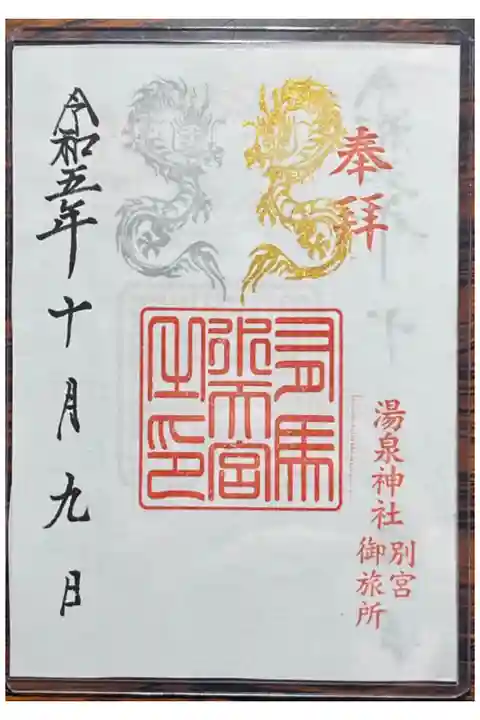 奉拝
湯泉神社
別宮
御旅所
有馬
水天宮
之印
令和五年十月九日